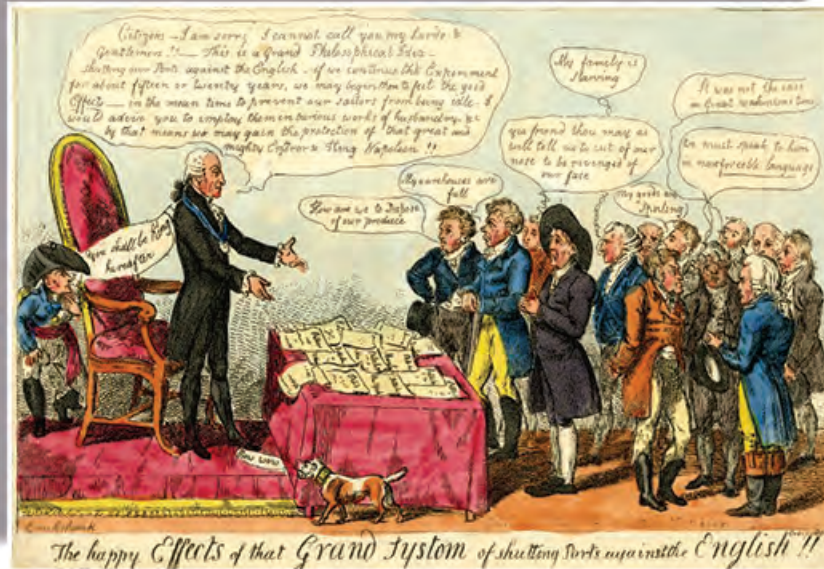 Citizens - I am sorry I cannot call you my Lords &
Gentlemen!! - This is a Grand Philosophical Idea -
shutting our Ports against the English - if we continue the Experiment
for about fifteen or twenty years, we may begin to feel the good
Effect - in the mean time to prevent our sailors from being idle. I
would advise you to employ them in various works of husbandry &c
by that means we may gain the protection of that great and
mighty King Napoleon!!
You shall be King
hereafter
How are we to Dispose
of our produce
My warehouses are
full
My family is
starving
friend thou may as
well tell us to cut of our
nose to be revenged of
our face
My goods are
Spoiling
It was not the case
in Great Washingtons time
must speak to him
in language
Bow wow
The happy Effects of that Grand System of shutting Ports against the English!!